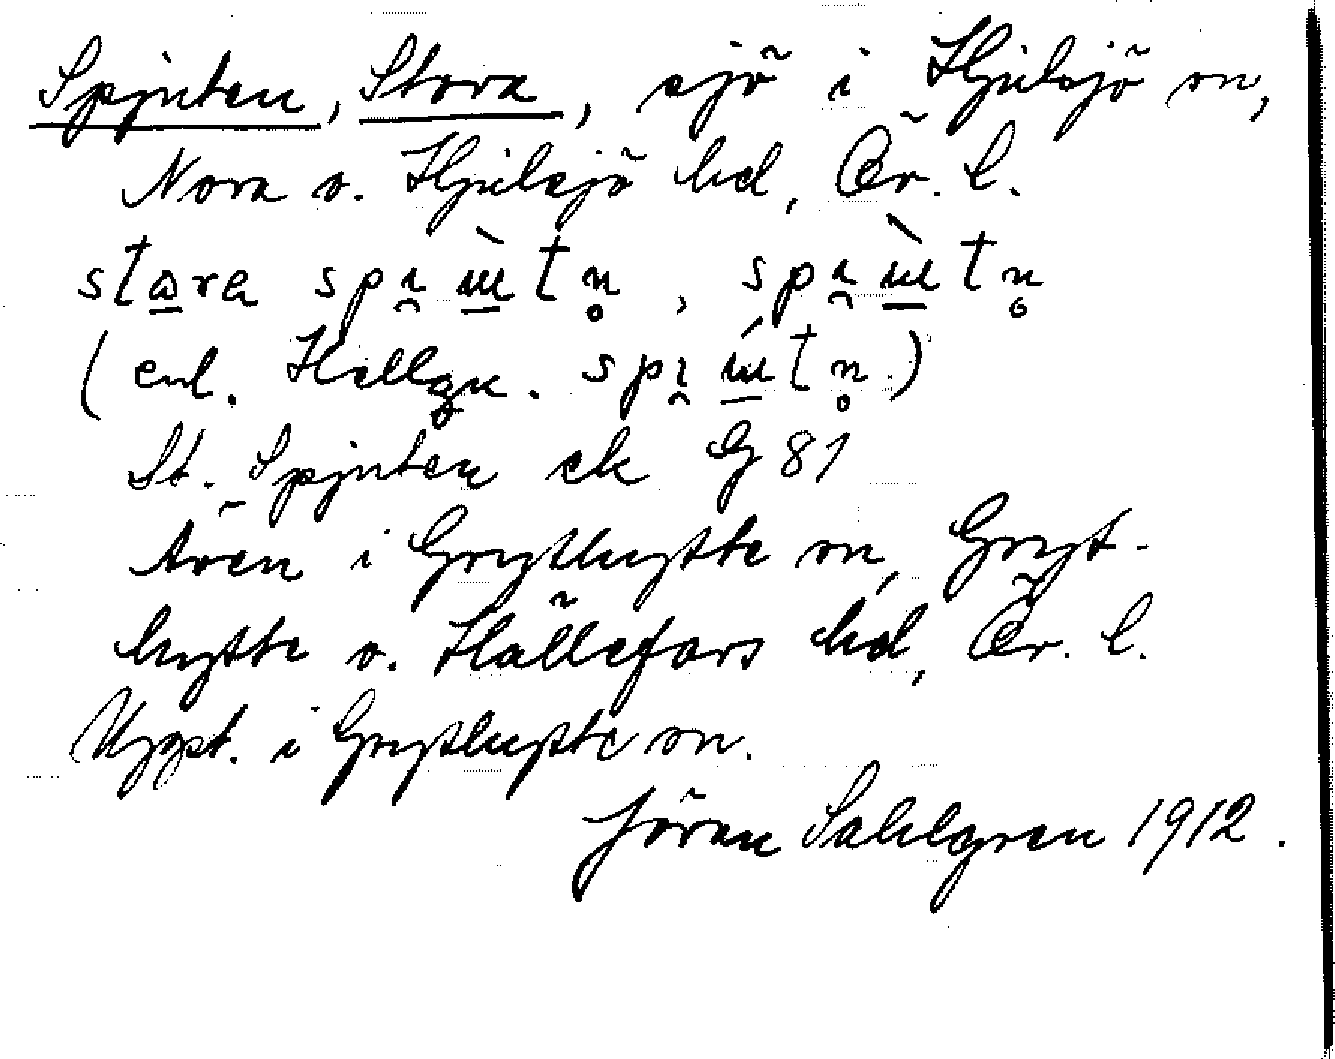 Spjuten, Stora, sjö i Hjulsjö sn,
Nora o. Hjulsjö hd, Ör. l.
stora
(enl. Hellgr.
St. Spjuten ek G 81
Även i Grythytte sn, Gryt-
hytte o. Hällefors hd, Ör. l.
Uppt. i Grythytte sn.
Jöran Sahlgren 1912.